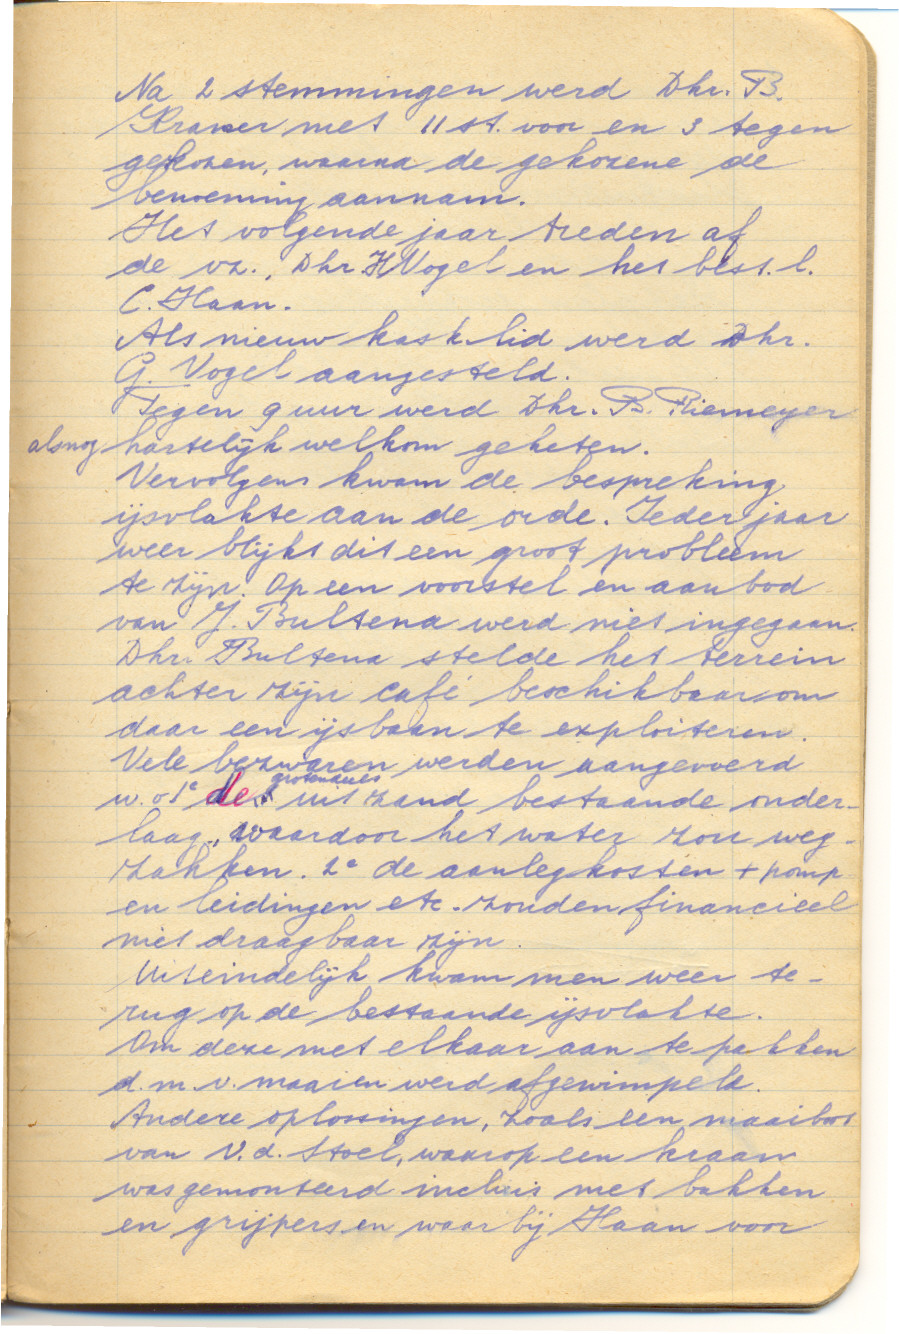 Na 2 stemmingen werd Dhr. B.
Kramer met 11 st. voor en 3 tegen
gekozen, waarna de gekozene de
benoeming aannam.
Het volgende jaar treden af
de vz., Dhr. H Vogel en het best. l.
C. Haan.
Als nieuw kask. lid werd Dhr.
G. Vogel aangesteld.
Tegen 9 uur werd Dhr. B. Riemeyer
alsnog hartelijk welkom geheten.
Vervolgens kwam de bespreking
ijsvlakte aan de orde. Ieder jaar
weer blijkt dit een groot probleem
te zijn. Op een voorstel en aanbod
van J. Bultena werd niet ingegaan.
Dhr. Bultena stelde het terrein
achter zijn café beschikbaar om
daar een ijsbaan te exploiteren.
Vele bezwaren werden aangevoerd
w.o 1e de grotendeels uit zand bestaande onder-
laag, waardoor het water zou weg-
zakken. 2e de aanlegkosten + pomp
en leidingen etc. zouden financieel
niet draagbaar zijn.
Uiteindelijk kwam men weer te-
rug op de bestaande ijsvlakte.
Om deze met elkaar aan te pakken
d.m.v. maaien werd afgewimpeld.
Andere oplossingen, zoals een maaiboot
van V.d. Stoel, waarop een kraan
was gemonteerd incluis met bakken
en grijpers en waar bij Haan voor